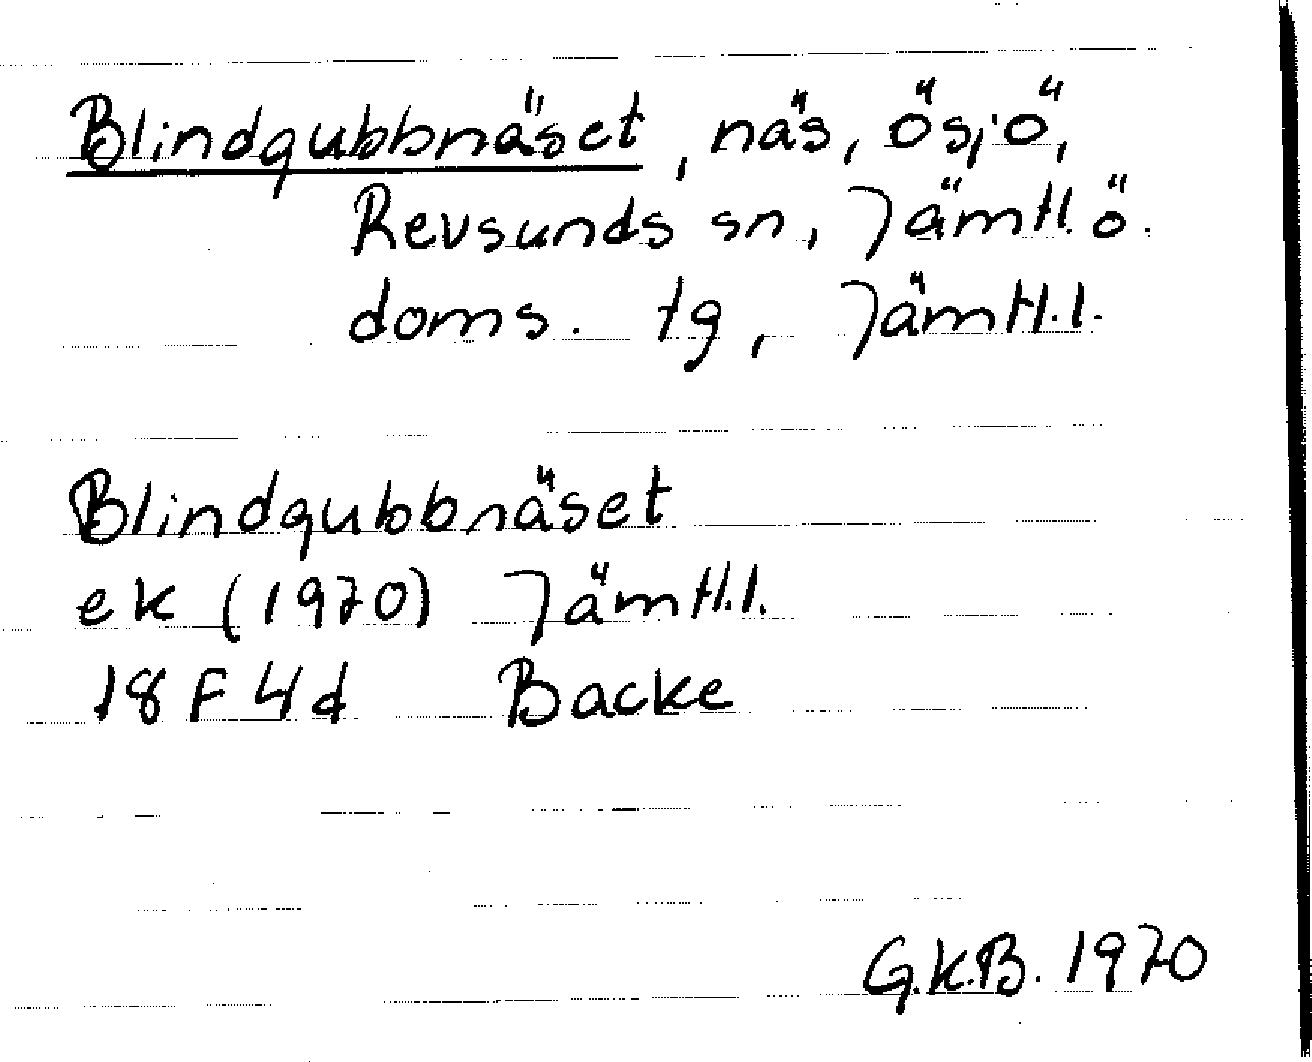 Blindgubbnäset, näs, Ösjö,
Revsunds sn, Jämtl. ö.
doms. tg, Jämtl.l.
Blindgubbnäset
ek (1970) Jämtl.l.
18 F 4d Backe
G.K.B. 1970